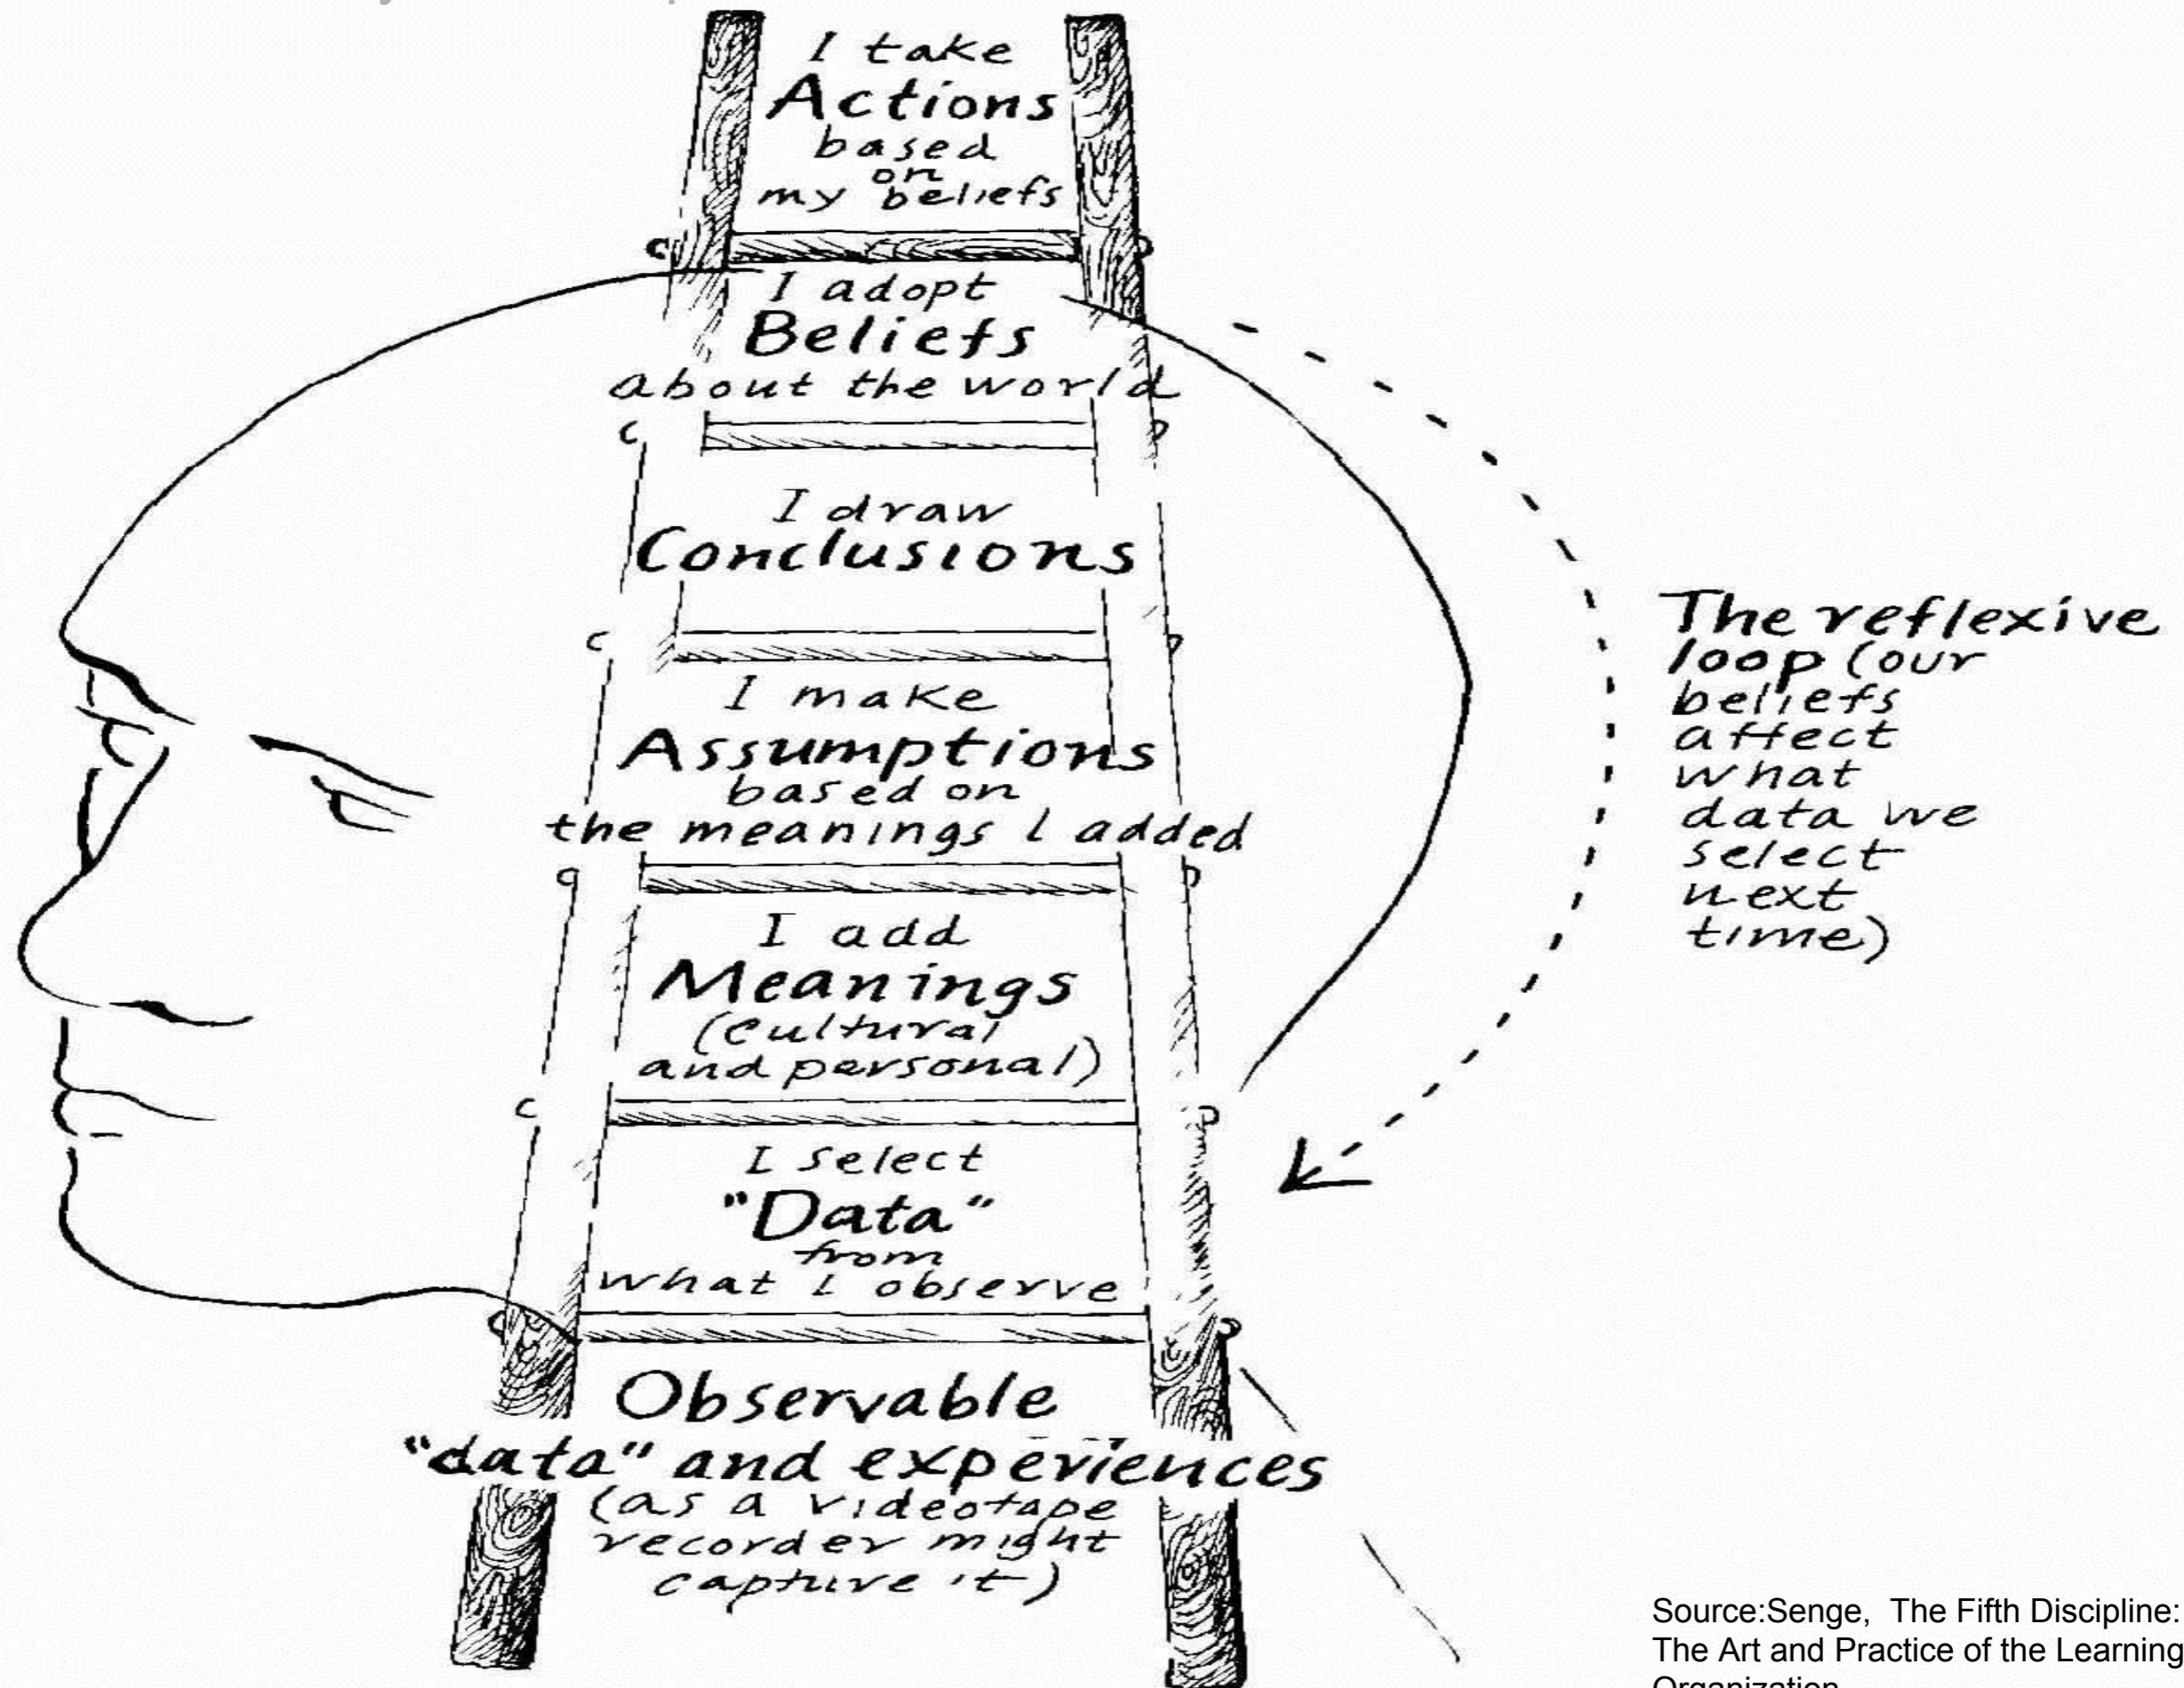 I take
Actions
based
on
my beliefs
I adopt
Beliefs
about the world
I draw
Conclusions
I make
Assumptions
based on
the meanings I added
I add
Meanings
(cultural
and personal)
I select
"Data"
from
what I observe
Observable
"data" and experiences
(as a videotape
recorder might
capture it)
The reflexive
loop (our
beliefs
affect
what
data we
select
next
time)
Source:Senge, The Fifth Discipline:
The Art and Practice of the Learning
Organization